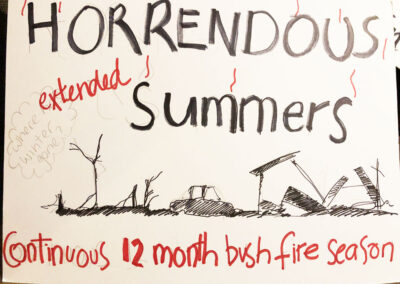 HORRENDOUS
extended
Summers
where's
winter
gone?
Continuous 12 month bushfire season